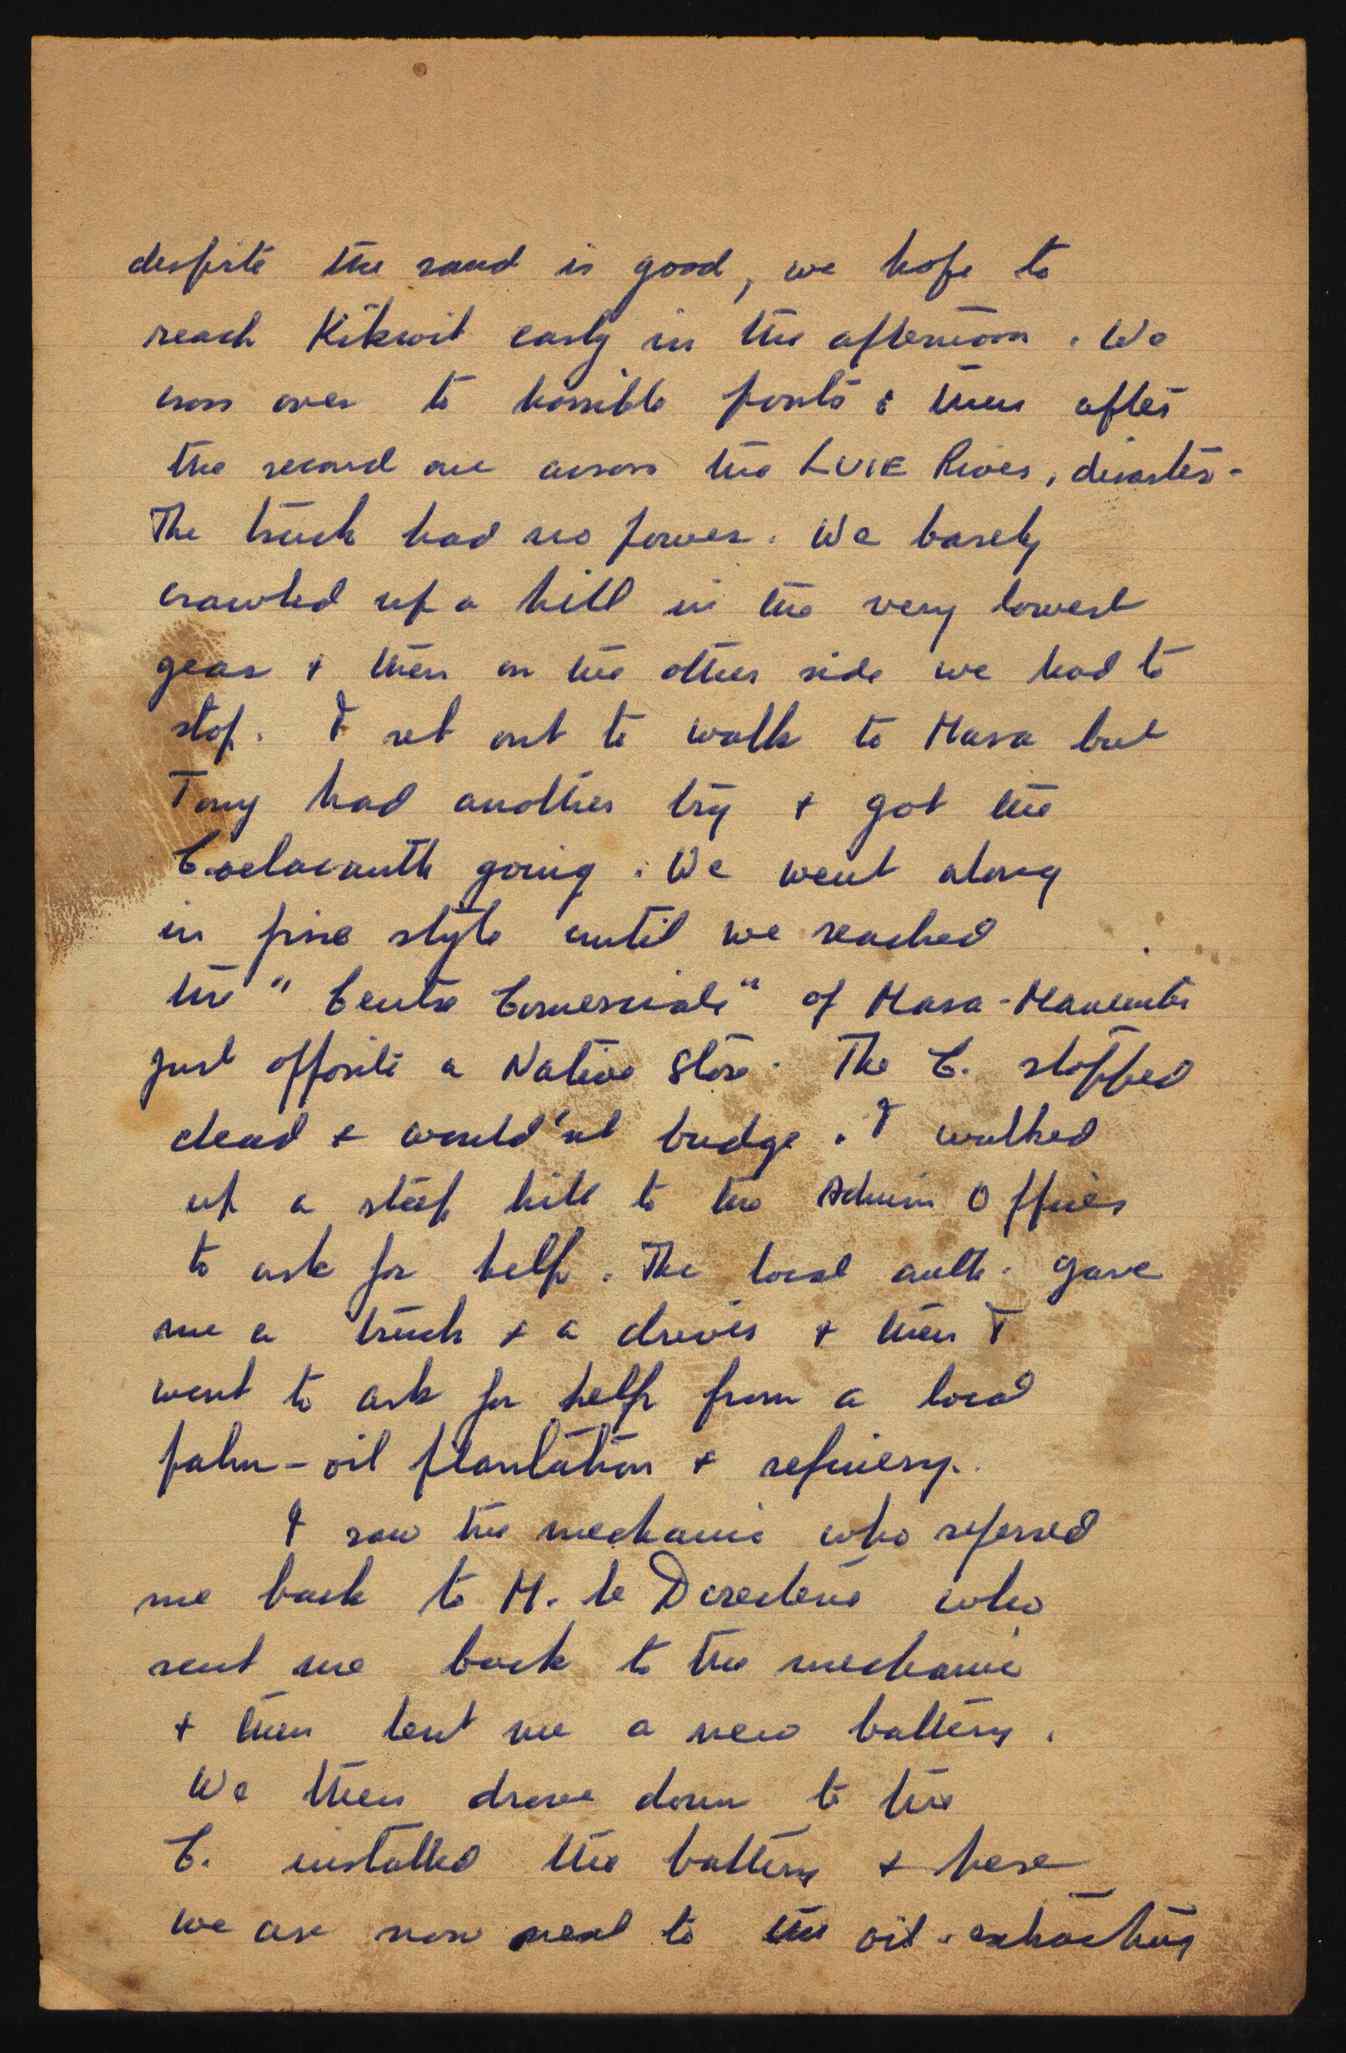 despite the sand is good, we hope to
reach Kikwit early in the afternoon. We
cross over to horrible ponts & then after
the second one across the LUIE River, disaster -
The truck had no power. We barely
crawled up a hill in the very lowest
gear + then on the other side we had to
stop. I set out to walk to Masa but
Tony had another try + got the
Coelacanth going. We went along
in fine style until we reached
the " Centre Comerciale" of Masa -
just opposite a Native Store. The C. stopped
dead + would'nt budge. I walked
up a steep hill to the Admin Offices
to ask for help. The local auth. gave
me a truck + a driver + then I
went to ask for help from a local
palm-oil plantation + refinery.
I saw the mechanic who referred
me back to M. le Directeur who
sent me back to the mechanic
+ then lent me a new battery.
We then drove down to the
C. installed the battery + here
we are now next to the oil-extracting